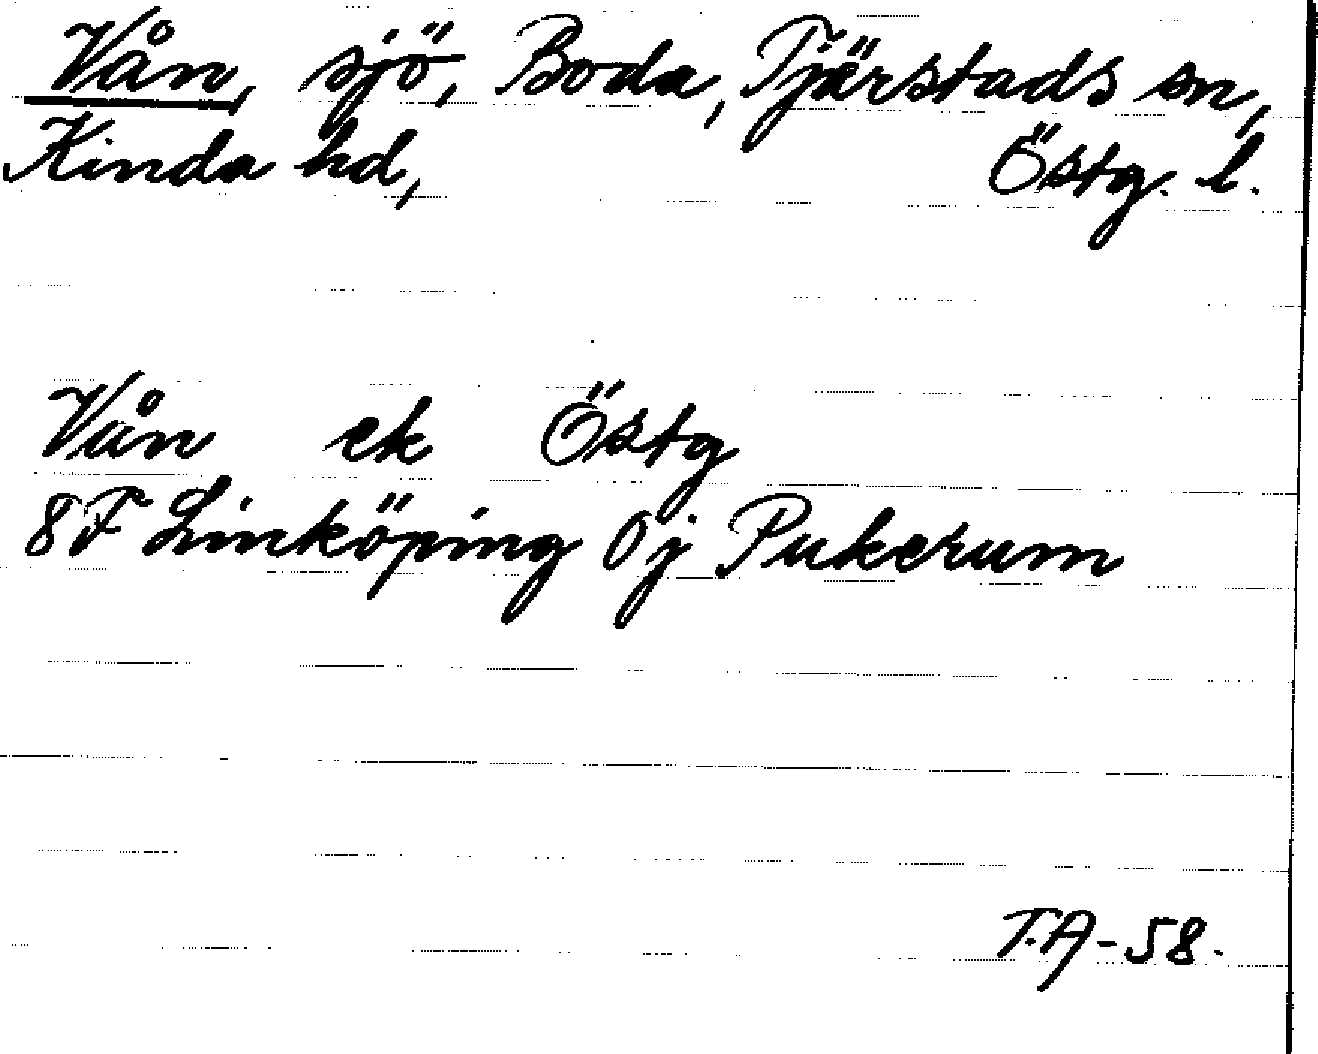 Vån, sjö, Boda, Tjärstads sn,
Kinda hd, Östg. l.
Vån ek Östg
8F Linköping 0j Pukerum
T.A-58.